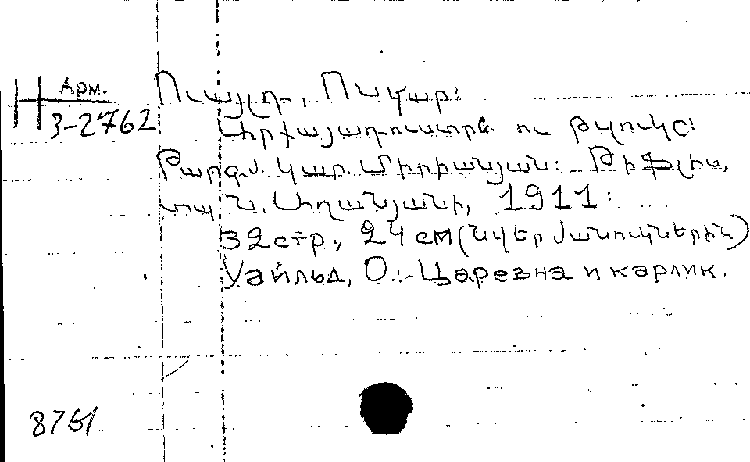 Н Арм.
3-2762
Ուայլդ, Օսկար։
Արքայադուստրն ու թզուկը։
Թարգմ. Կար. Միրիանյան։ Թիֆլիս,
տպ. Ն. Աղանյանի, 1911։
32 стр., 24 см (նվեր մանուկներին)
Уайльд, О. Царевна и карлик.
8751